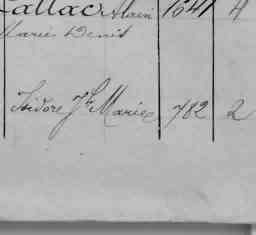 Callac Alain 1641 4
Marie Denis
Isidore Jh Marie 782 2